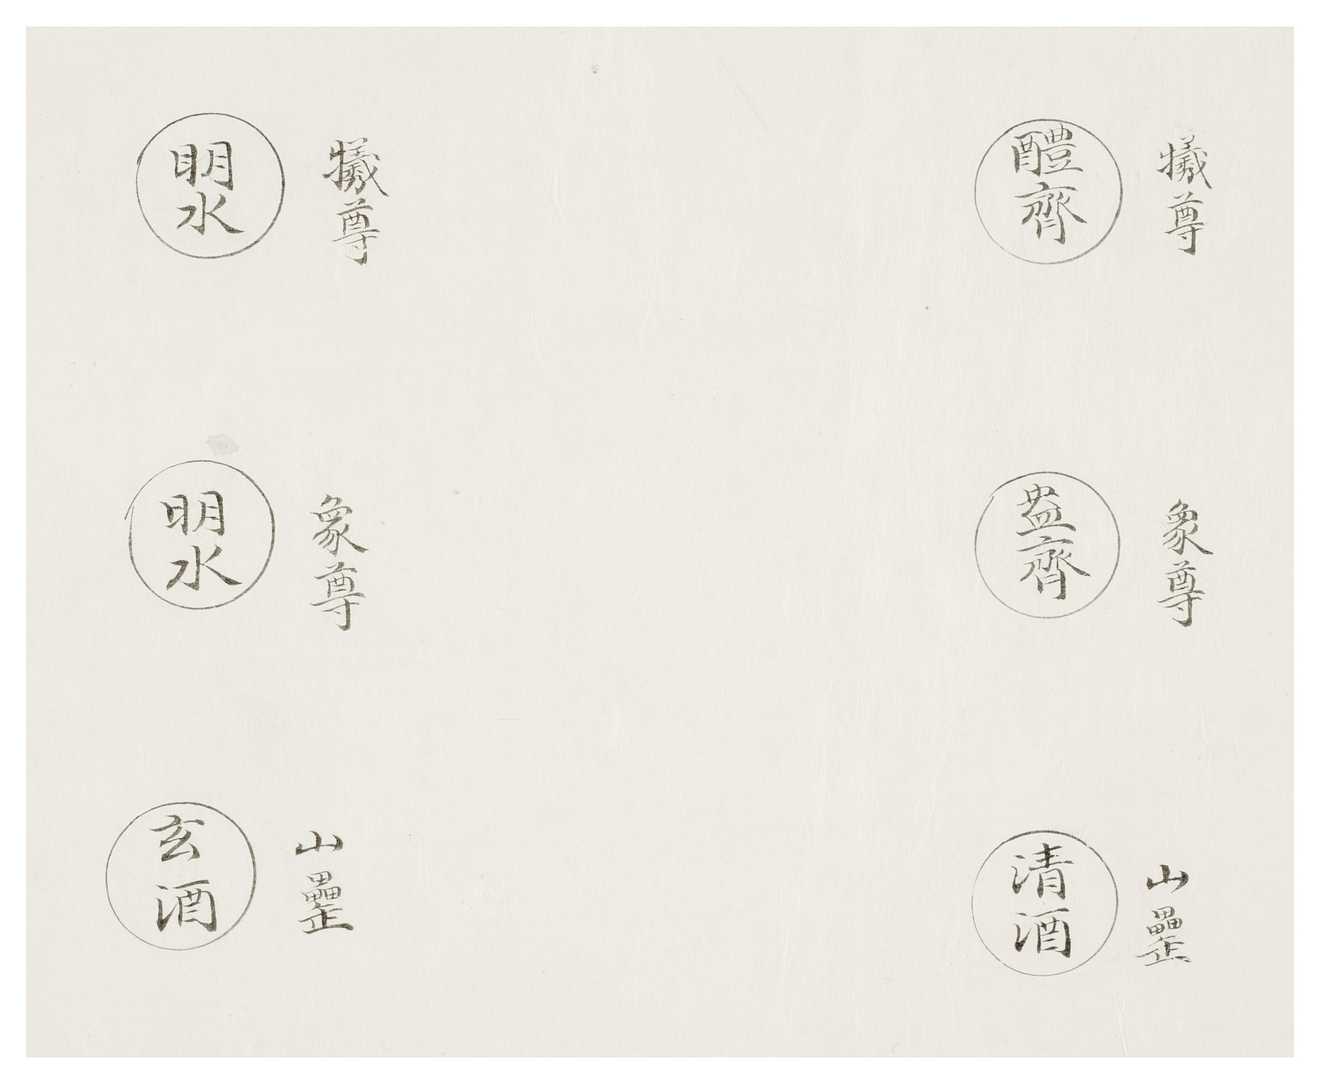 犧尊
醴齊
象尊
盎齊
山罍
清酒
犧尊
明水
象尊
明水
山罍
玄酒